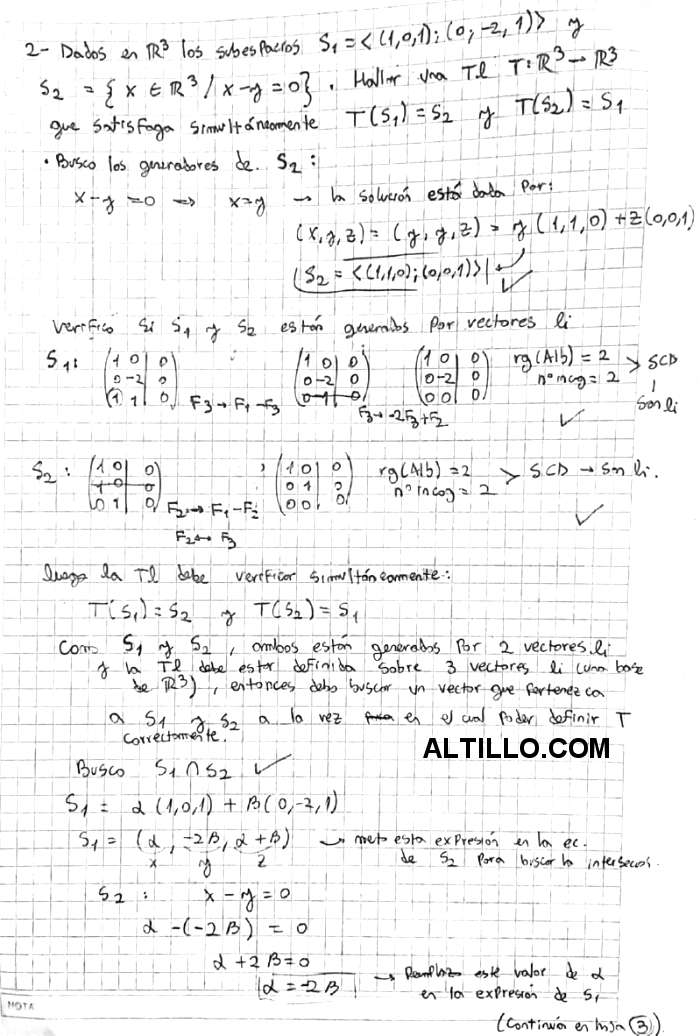 2- Dados en R³ los subespacios S₁ = <(1,0,1); (0,-2,1)> y
S₂ = {x ∈ R³ / x-y=0}. Hallar una Tl T: R³ → R³
que satisfaga simultáneamente T(S₁) = S₂ y T(S₂) = S₁
• Busco los generadores de S₂:
x-y=0 ⇒ x=y → la solución está dada por:
(x,y,z) = (y,y,z) = y(1,1,0) + z(0,0,1)
S₂ = <(1,1,0);(0,0,1)> ✓
Verifico si S₁ y S₂ están generados por vectores li
S₁: (1 0 | 0 ; (1 0 | 0 (1 0 | 0 rg(A|b) = 2 > SCD
0 -2 | 0 0 -2 | 0 0 -2 | 0 nº incog = 2 ↓
1 1 | 0) F₃→F₁-F₃ 0 -1 | 0) 0 0 | 0) Son li
F₃→-2F₃+F₂ ✓
S₂: (1 0 | 0 ; (1 0 | 0 rg(A|b) = 2 > SCD → Son li.
1 0 | 0 0 1 | 0 nº incog = 2
0 1 | 0) F₂→F₁-F₂ 0 0 | 0) ✓
F₂↔F₃
luego la Tl debe verificar simultáneamente:
T(S₁) = S₂ y T(S₂) = S₁
Como S₁ y S₂, ambos están generados por 2 vectores li
y la Tl debe estar definida sobre 3 vectores li (una base
de R³), entonces debo buscar un vector que pertenezca
a S₁ y S₂ a la vez en el cual poder definir T
correctamente.
ALTILLO.COM
Busco S₁ ∩ S₂ ✓
S₁ = α(1,0,1) + β(0,-2,1)
S₁ = (α, -2β, α+β) → meto esta expresión en la ec.
x y z de S₂ para buscar la intersección.
S₂: x-y=0
α-(-2β) = 0
α+2β=0
α = -2β → Remplazo este valor de α
en la expresión de S₁
NOTA
(Continúa en hoja ③)